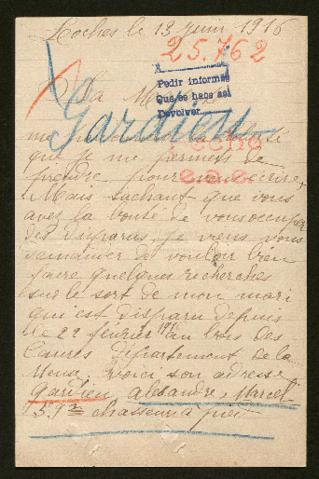 Loches le 13 juin 1916
25.762
Pedir informes
Que és haos así
Devolver
Sa M
Gardien
que je me permets de
prendre pour vous écrire,
Mais sachant que vous
avez la bonté de vous occuper
des disparus, je viens vous
demander de vouloir bien
faire quelques recherches
sur le sort de mon mari
qui est disparu depuis
le 22 février 1916 au bois des
Caures Département de la
Meuse, voici son adresse
Gardien Alexandre Marcel
59e chasseurs à pied